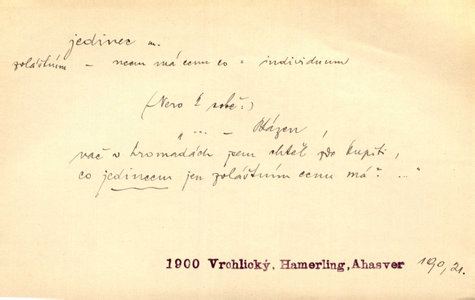 jedinec m.
zvláštním – necem má cenu co = individuum
(Nero k sobě:)
„ ... – Blázen,
nač v hromadách jsem chtěl zde kupiti,
co jedincem jen zvláštním cenu má? ..."
1900 Vrchlický, Hamerling, Ahasver 190, 21.